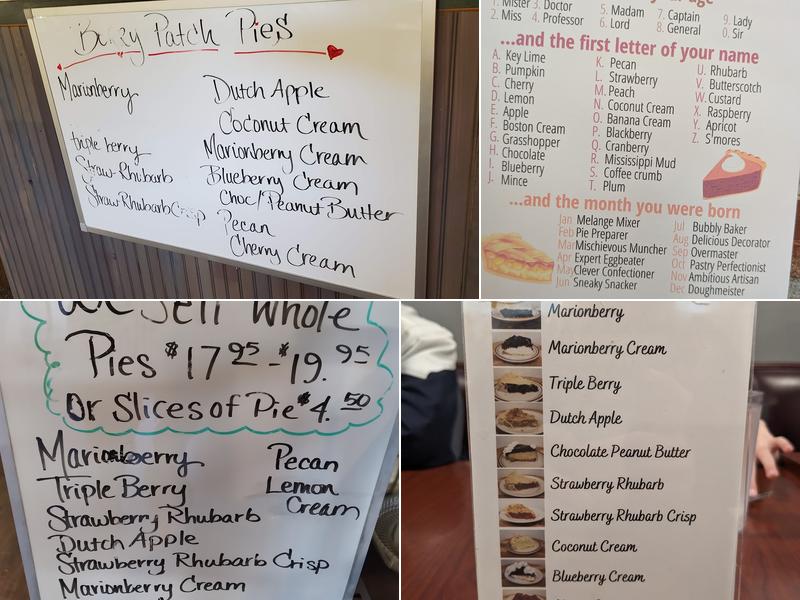 Buzzy Patch Pies
Marionberry
triple berry
Straw-Rhubarb
Straw RhubarbCrisp
Dutch Apple
Coconut Cream
Marionberry Cream
Blueberry Cream
Choc/Peanut Butter
Pecan
Cherry Cream
1. Mister
2. Miss
3. Doctor
4. Professor
5. Madam
6. Lord
7. Captain
8. General
9. Lady
0. Sir
...and the first letter of your name
A. Key Lime
B. Pumpkin
C. Cherry
D. Lemon
E. Apple
F. Boston Cream
G. Grasshopper
H. Chocolate
I. Blueberry
J. Mince
K. Pecan
L. Strawberry
M. Peach
N. Coconut Cream
O. Banana Cream
P. Blackberry
Q. Cranberry
R. Mississippi Mud
S. Coffee crumb
T. Plum
U. Rhubarb
V. Butterscotch
W. Custard
X. Raspberry
Y. Apricot
Z. S'mores
...and the month you were born
Jan Melange Mixer
Feb Pie Preparer
Mar Mischievous Muncher
Apr Expert Eggbeater
May Clever Confectioner
Jun Sneaky Snacker
Jul Bubbly Baker
Aug Delicious Decorator
Sep Overmaster
Oct Pastry Perfectionist
Nov Ambitious Artisan
Dec Doughmeister
We Sell Whole
Pies $17.95-$19.95
Or Slices of Pie $4.50
Marionberry
Triple Berry
Strawberry Rhubarb
Dutch Apple
Strawberry Rhubarb Crisp
Marionberry Cream
Pecan
Lemon
Cream
Marionberry
Marionberry Cream
Triple Berry
Dutch Apple
Chocolate Peanut Butter
Strawberry Rhubarb
Strawberry Rhubarb Crisp
Coconut Cream
Blueberry Cream